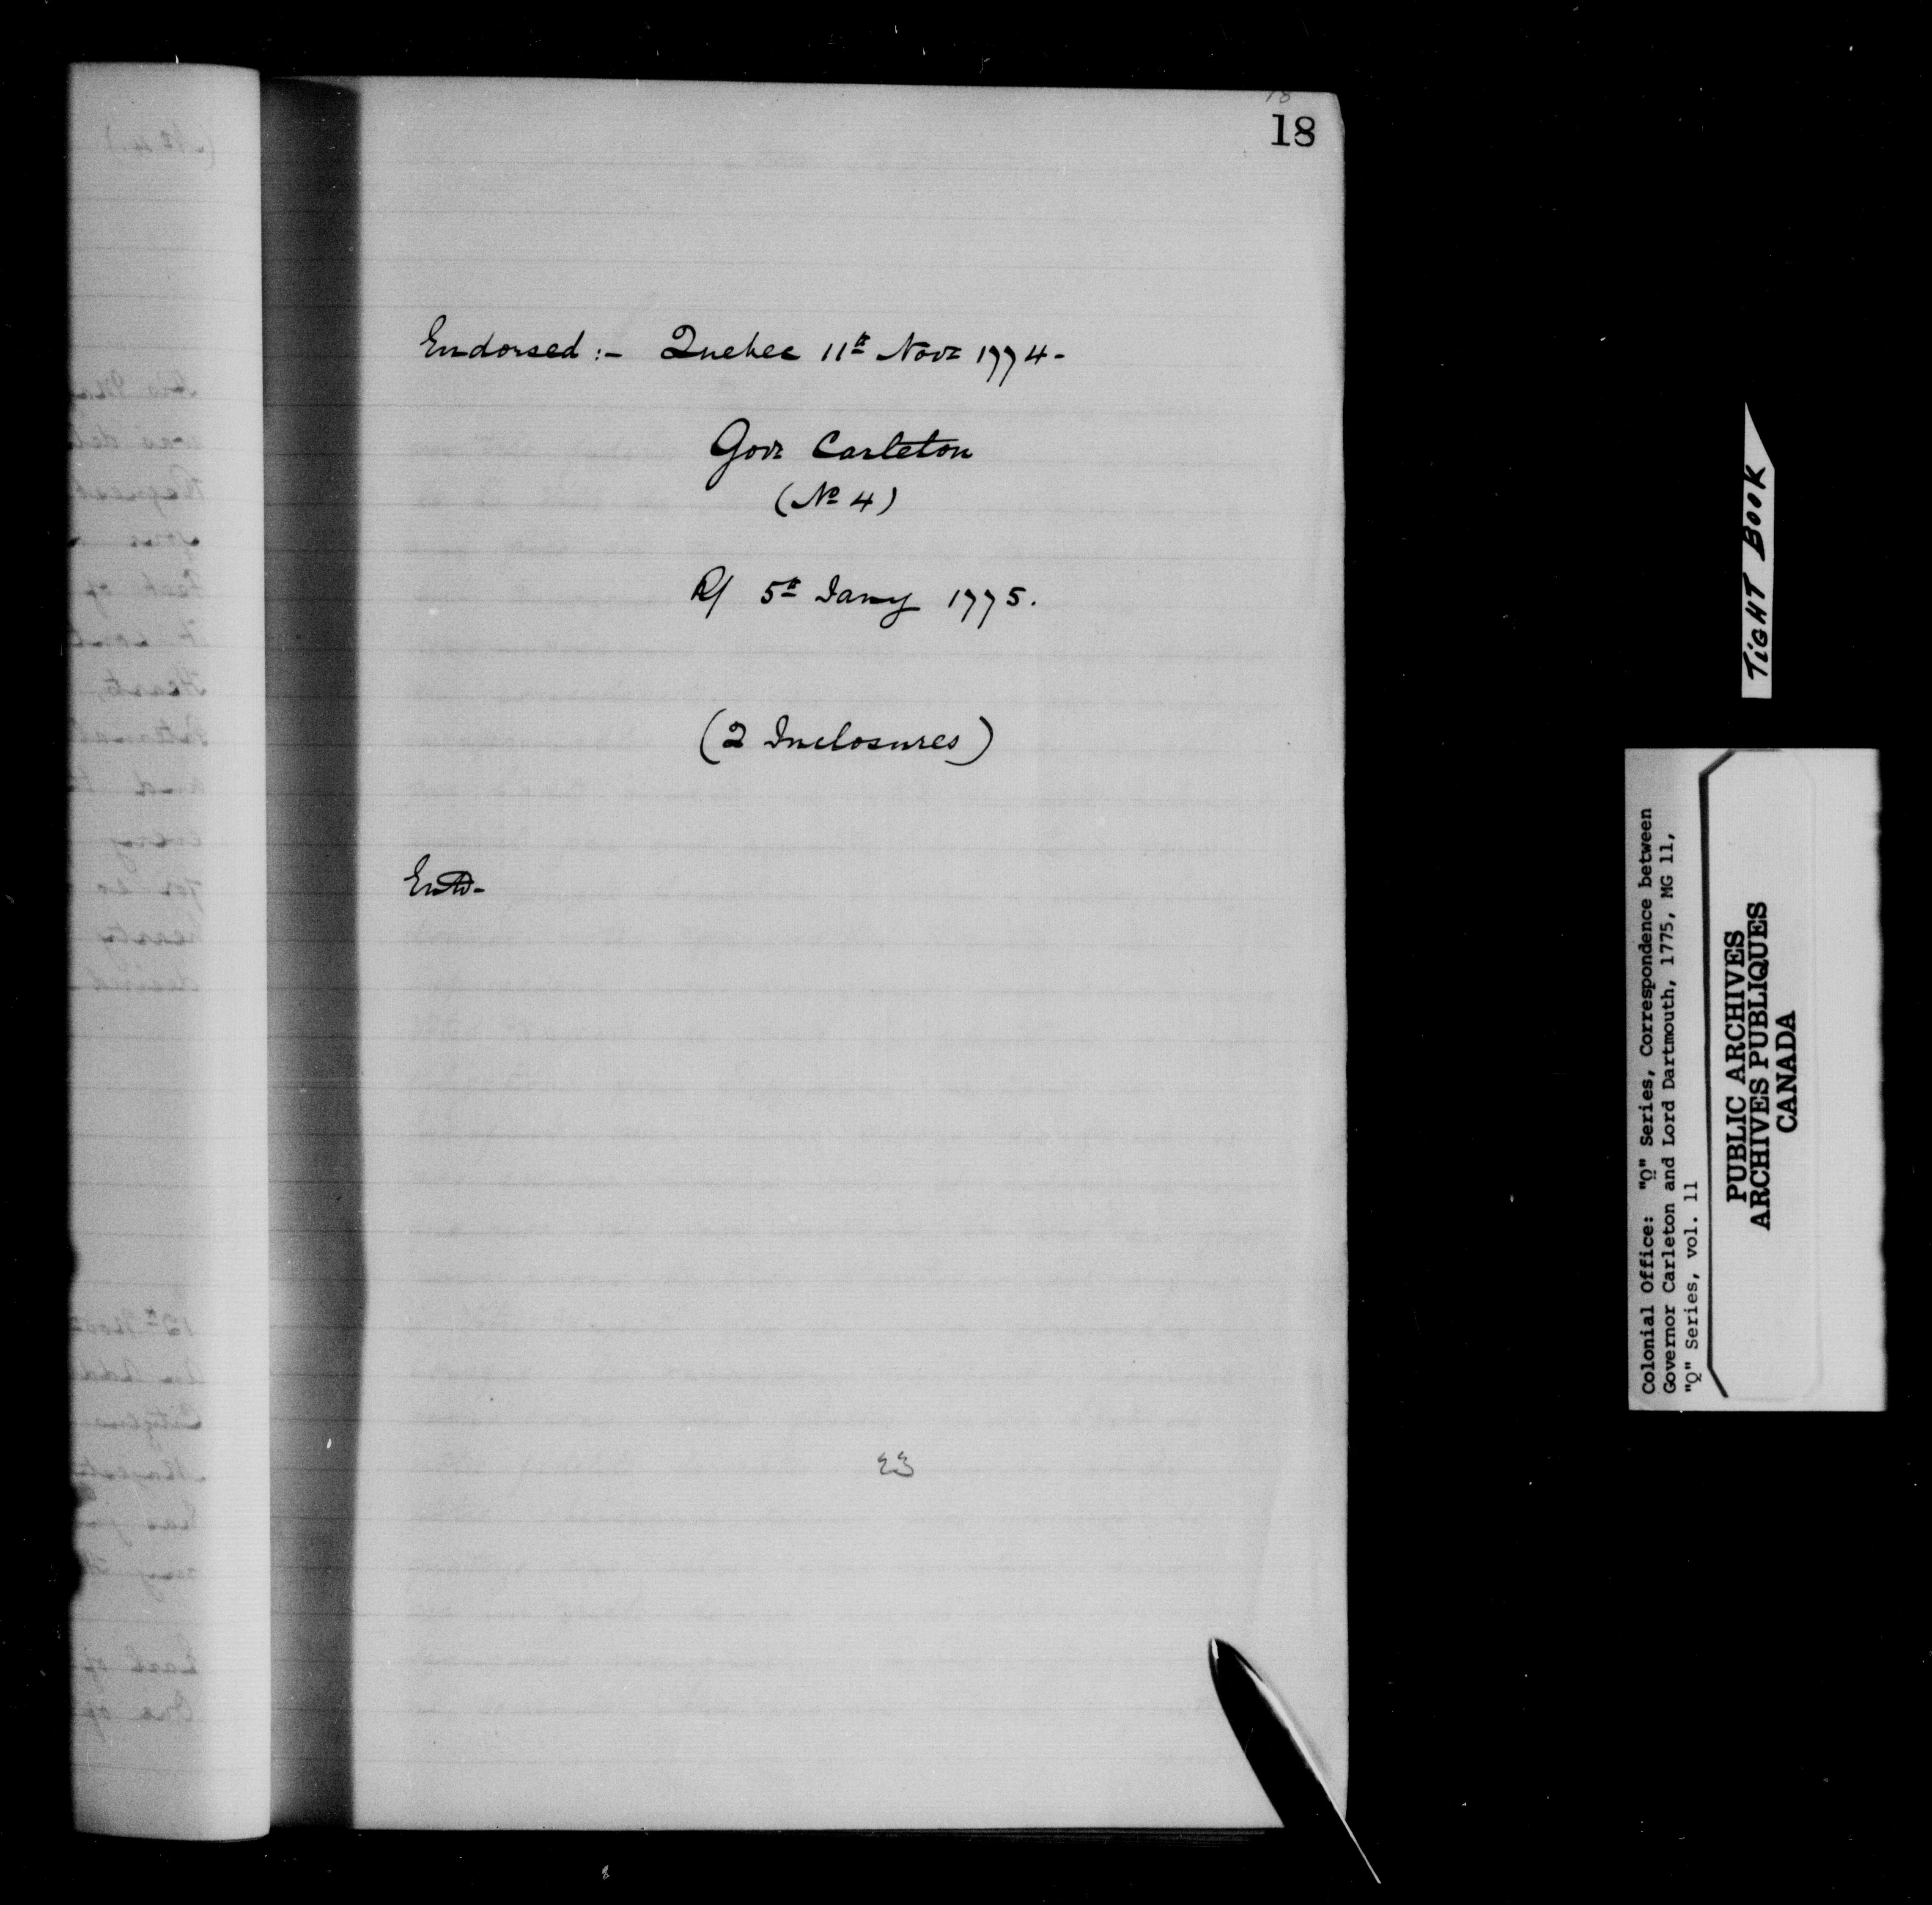 18
18
Endorsed :- Quebec 11th Novr 1774-
Govr Carleton
(No 4)
R/ 5th Jany 1775.
(2 Inclosures)
Entd-
23
TIGHT BOOK
Colonial Office: "Q" Series, Correspondence between
Governor Carleton and Lord Dartmouth, 1775, MG 11,
"Q" Series, vol. 11
PUBLIC ARCHIVES
ARCHIVES PUBLIQUES
CANADA